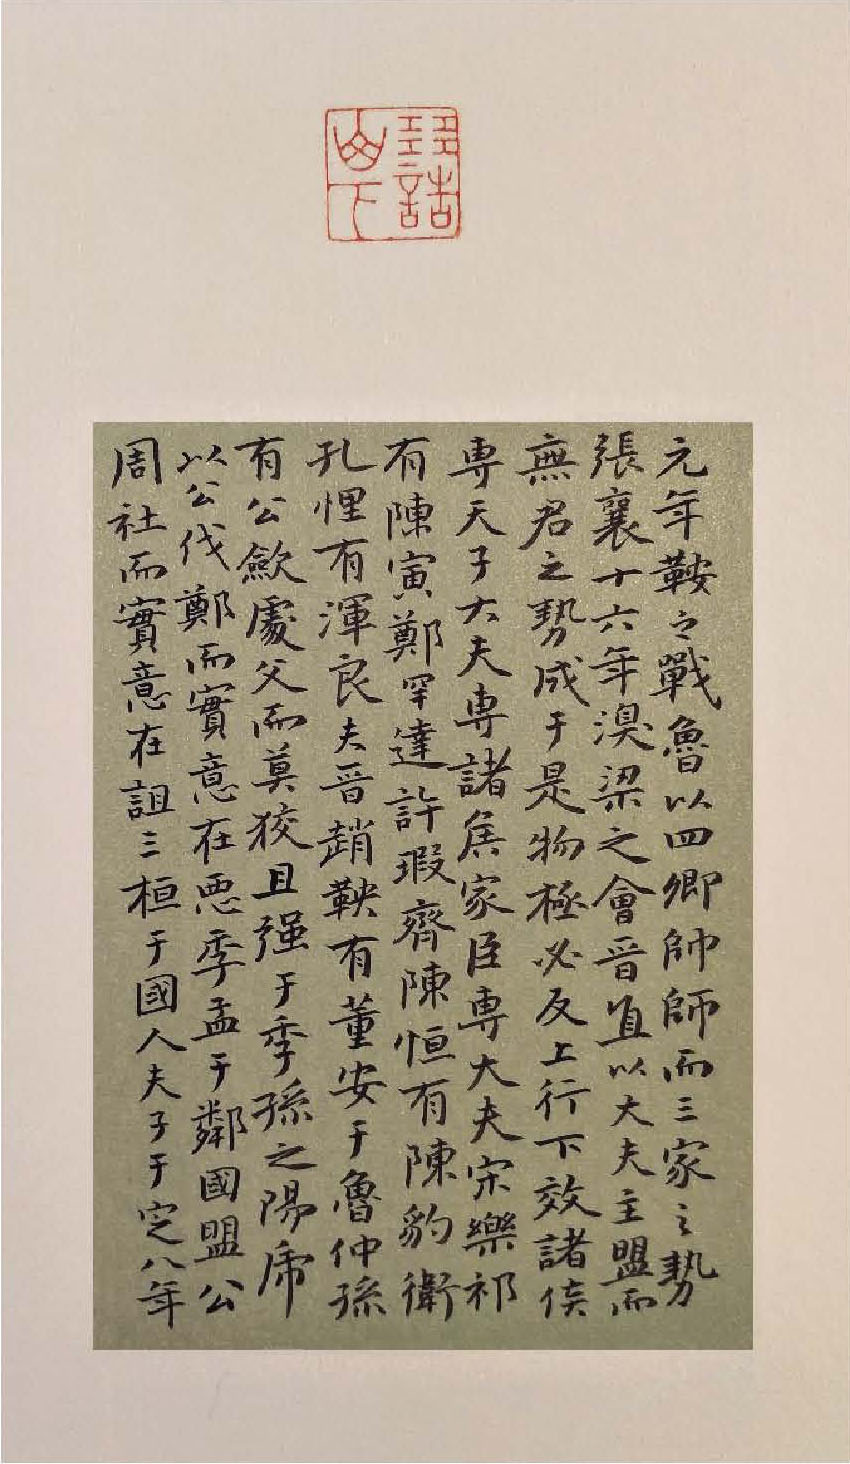 元年鞍之戰魯以四卿帥師而三家之勢
張襄十六年湨梁之會晉直以大夫主盟而
無君之勢成于是物極必反上行下效諸侯
專天子大夫專諸侯家臣專大夫宋樂祁
有陳寅鄭罕達許瑕齊陳恒有陳豹衛
孔悝有渾良夫晉趙鞅有董安于魯仲孫
有公歛處父而莫狡且强于季孫之陽虎
以公伐鄭而實意在惡季孟于鄰國盟公
周社而實意在詛三桓于國人夫子于定八年